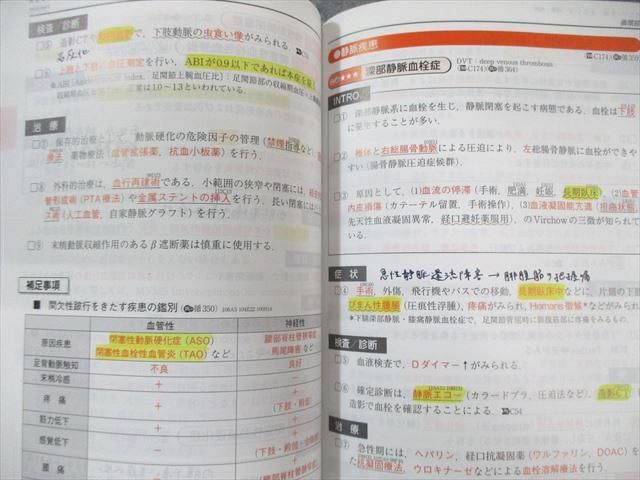 検査／診断
□⑤ 造影CTや
で，下肢動脈の虫食い像がみられる．
□⑥ 上肢と下肢の血圧測定を行い，ABIが0.9以下であれば本症を疑
足関節上腕血圧比）：足関節の収縮期血圧÷
1.0～1.3といわれている．
治 療
□⑦ 保存的治療として，動脈硬化の危険因子の管理（禁煙指導など），
療法，薬物療法（血管拡張薬，抗血小板薬）を行う．
□⑧ 外科的治療は，血行再建術である．小範囲の狭窄や閉塞には，
管形成術（PTA療法）や金属ステントの挿入を行う．長い閉塞には
ス術（人工血管，自家静脈グラフト）を行う．
□⑨ 末梢動脈収縮作用のあるβ遮断薬は慎重に使用する．
補足事項
■ 間欠性跛行をきたす疾患の鑑別（循350） 106A5 104E22 100H14
血管性 神経性
原因疾患 閉塞性動脈硬化症（ASO） 腰部脊柱管狭窄症
閉塞性血栓性血管炎（TAO）など 馬尾障害など
足背動脈触知 不良 良好
末梢冷感 ＋
疼 痛 ＋ ＋
（下肢・殿部）
筋力低下 ＋ ＋
感覚低下 － ＋
（下肢・殿部）
腰 痛 － ＋
静脈疾患
深部静脈血栓症 DVT：deep venous thrombosis
（C174）（循364）
INTRO.
□① 深部静脈系に血栓を生じ，静脈閉塞を起こす病態である．血栓は下肢
に発生することが多い．
□② 椎体と右総腸骨動脈による圧迫により，左総腸骨静脈に血栓ができや
すい（腸骨静脈圧迫症候群）．
□③ 原因として，(1)血流の停滞（手術，肥満，妊娠，長期臥床），(2)血管
内皮損傷（カテーテル留置，手術操作），(3)血液凝固能亢進（担癌状態，
先天性血液凝固異常，経口避妊薬服用），のVirchowの三徴が知られて
いる．
症 状
□④ 手術，外傷，飛行機やバスでの移動，長期臥床中などに，片側の下
びまん性腫脹（圧痕性浮腫），疼痛がみられ，Homans徴候*などがみられ
*下腿深部静脈・膝窩静脈血栓症で，足関節背屈時に腓腹筋部に疼痛をみるもの．
検査／診断
□⑤ 血液検査で，Dダイマー↑がみられる．
□⑥ 確定診断は，静脈エコー（カラードプラ，圧迫法など），造影CT
造影で血栓を確認することによる．C54
治 療
□⑦ 急性期には，ヘパリン，経口抗凝固薬（ワルファリン，DOAC）を
た抗凝固療法，ウロキナーゼなどによる血栓溶解療法を行う